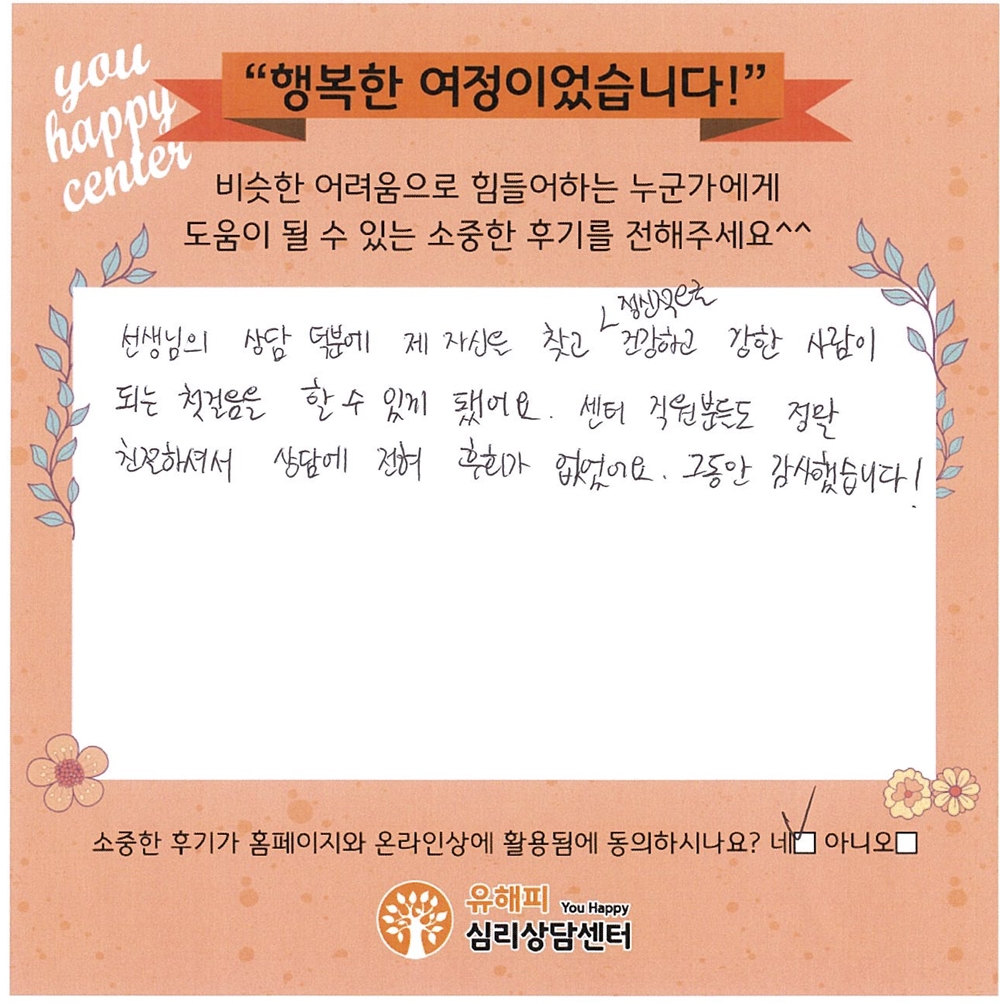 you
happy
center
“행복한 여정이었습니다!”
비슷한 어려움으로 힘들어하는 누군가에게
도움이 될 수 있는 소중한 후기를 전해주세요^^
정신적으로
선생님의 상담 덕분에 제 자신을 찾고 건강하고 강한 사람이
되는 첫걸음을 할 수 있게 됐어요. 센터 직원분들도 정말
친절하셔서 상담에 전혀 후회가 없었어요. 그동안 감사했습니다!
소중한 후기가 홈페이지와 온라인상에 활용됨에 동의하시나요? 네 아니오
유해피 You Happy
심리상담센터